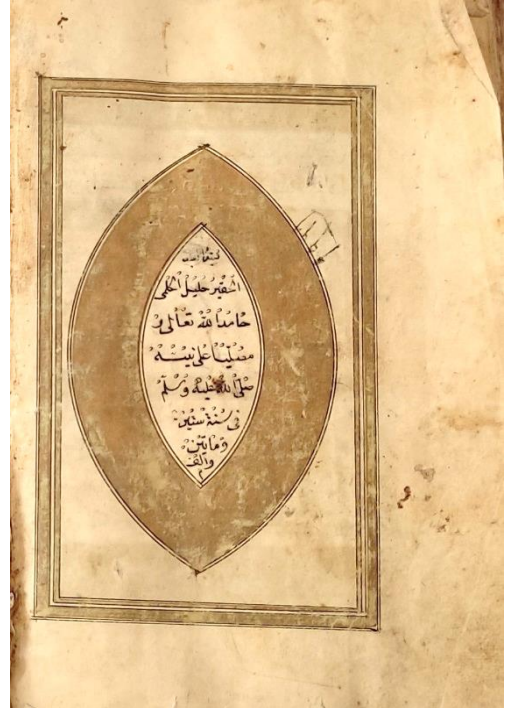 كتبها العبد
الفقير خليل الحلمى
حامداً لله تعالى و
مصلّياً على نبيّه
صلّى الله عليه وسلّم
فى سنة ستين
ومأتين
وألف
م